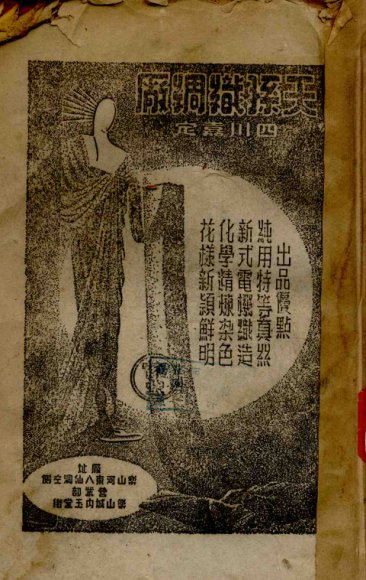 天孫織綢廠
四川嘉定
出品優點
純用特等真絲
新式電機織造
化學精煉染色
花樣新穎鮮明
廠址
樂山河東八仙洞側
營業部
樂山城內玉堂街